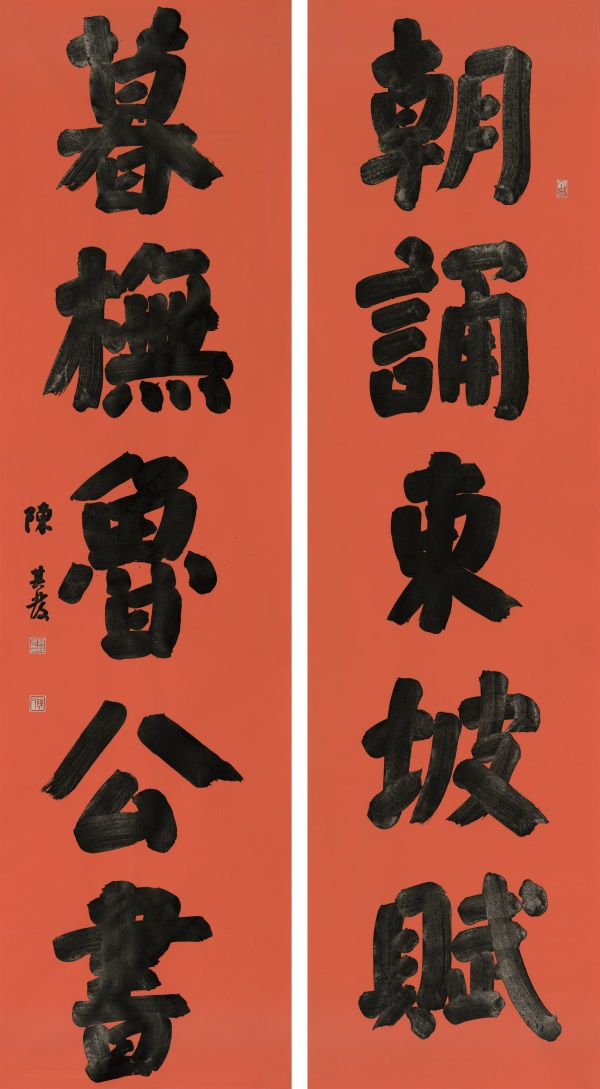 朝誦東坡賦
暮橅魯公書
陳其